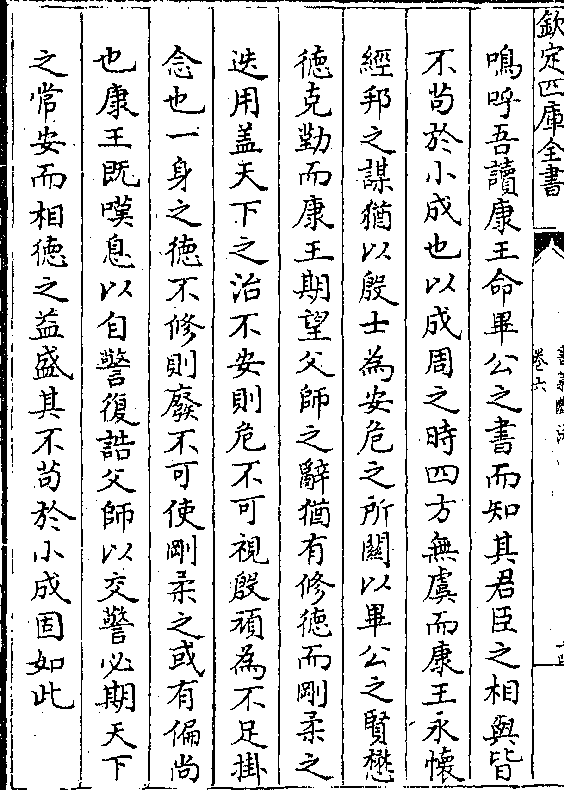 欽定四庫全書
卷六
嗚呼吾讀康王命畢公之書而知其君臣之相與皆
不苟於小成也以成周之時四方無虞而康王永懷
經邦之謀猶以殷士為安危之所關以畢公之賢懋
徳克勤而康王期望父師之辭猶有修徳而剛柔之
迭用盖天下之治不安則危不可視殷頑為不足掛
念也一身之徳不修則廢不可使剛柔之或有偏尚
也康王既嘆息以自警復誥父師以交警必期天下
之常安而相徳之益盛其不苟於小成固如此